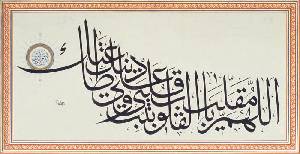 اللهم يا مقلب القلوب ثبت قلبي على دينك وطاعتك